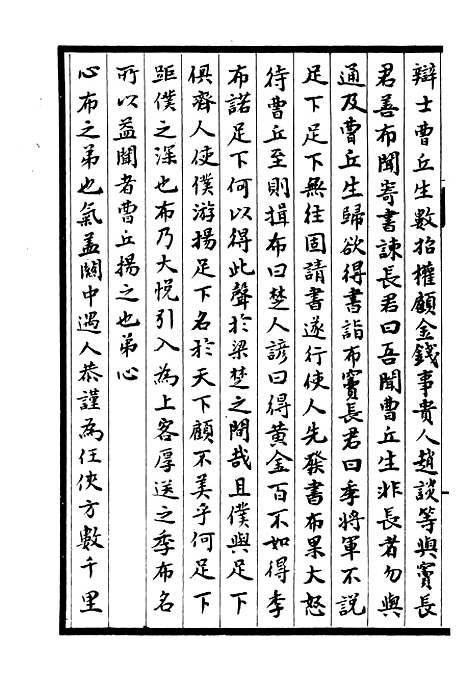 辯士曹丘生數招權顧金錢事貴人趙談等與竇長
君善布聞寄書諫長君曰吾聞曹丘生非長者勿與
通及曹丘生歸欲得書詣布竇長君曰季將軍不說
足下足下無往固請書遂行使人先發書布果大怒
待曹丘至則揖布曰楚人諺曰得黃金百不如得季
布諾足下何以得此聲於梁楚之閒哉且僕與足下
俱齊人使僕游揚足下名於天下顧不美乎何足下
距僕之深也布乃大悅引入為上客厚送之季布名
所以益聞者曹丘揚之也弟心
心布之弟也氣蓋關中遇人恭謹為任俠方數千里